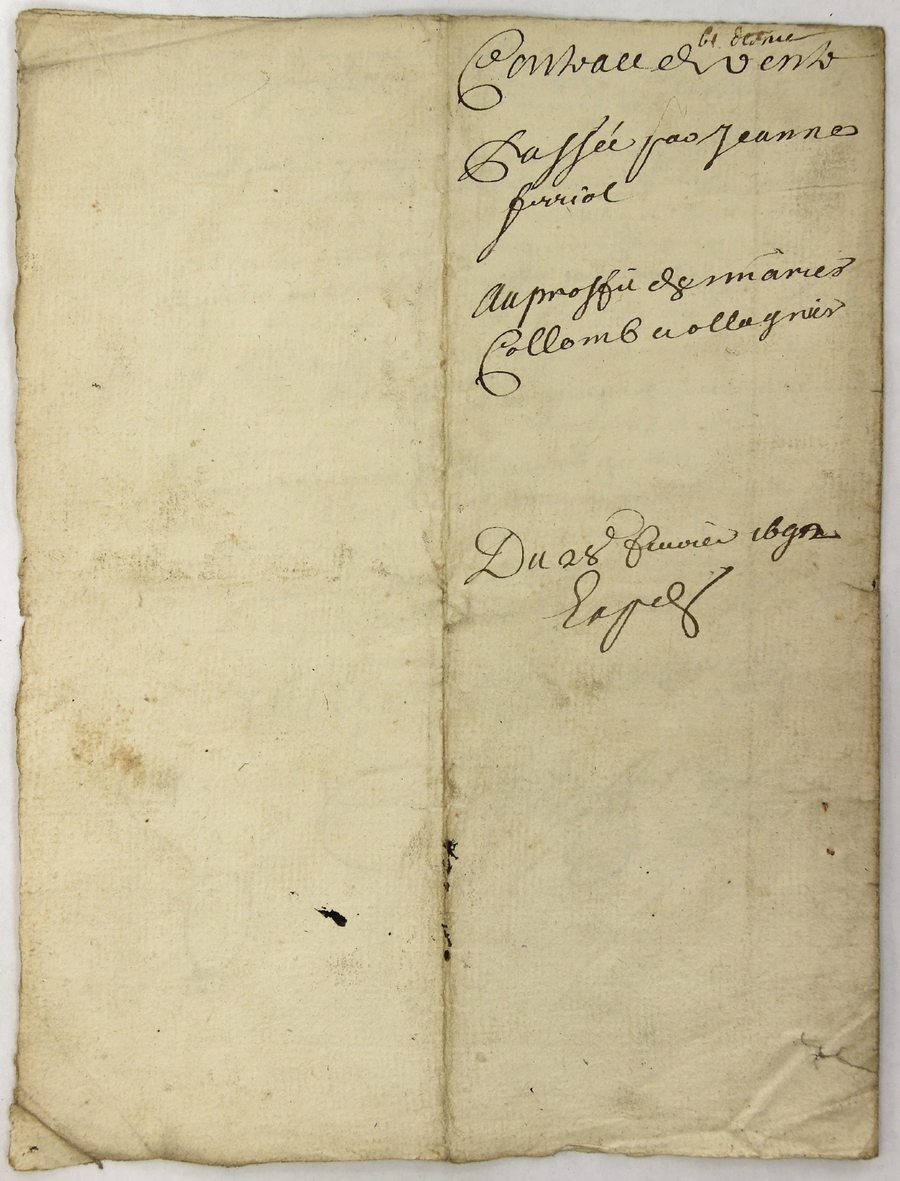 Contract de Vente
Passée par Jeanne
ferriol
Au proffit des mariés
Collomb et ollagnier
Du 28e feuvrier 1692